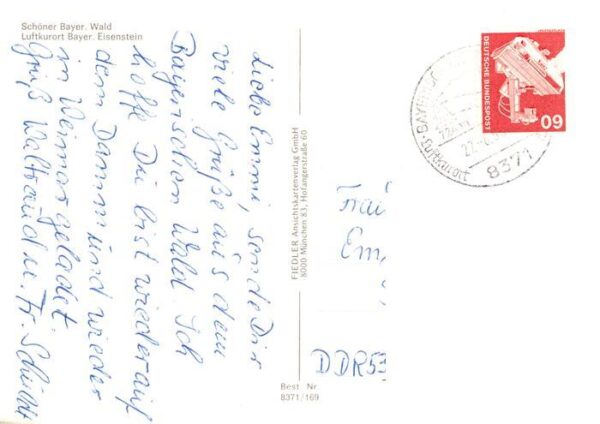 Schöner Bayer. Wald
Luftkurort Bayer. Eisenstein
Liebe Emmi, sende Dir
viele Grüße aus dem
Bayerischen Wald. Ich
hoffe Du bist wieder auf
dem Damm und wieder
in Weimar gelandet
Gruß Waltraud u. Fr. Schicht
FIEDLER Ansichtskartenverlag GmbH
8000 München 83, Hofangerstraße 60
Best Nr
8371/169
DEUTSCHE BUNDESPOST
60
BAYERISCH
Luftkurort
8371
Frau
Em
DDR 53